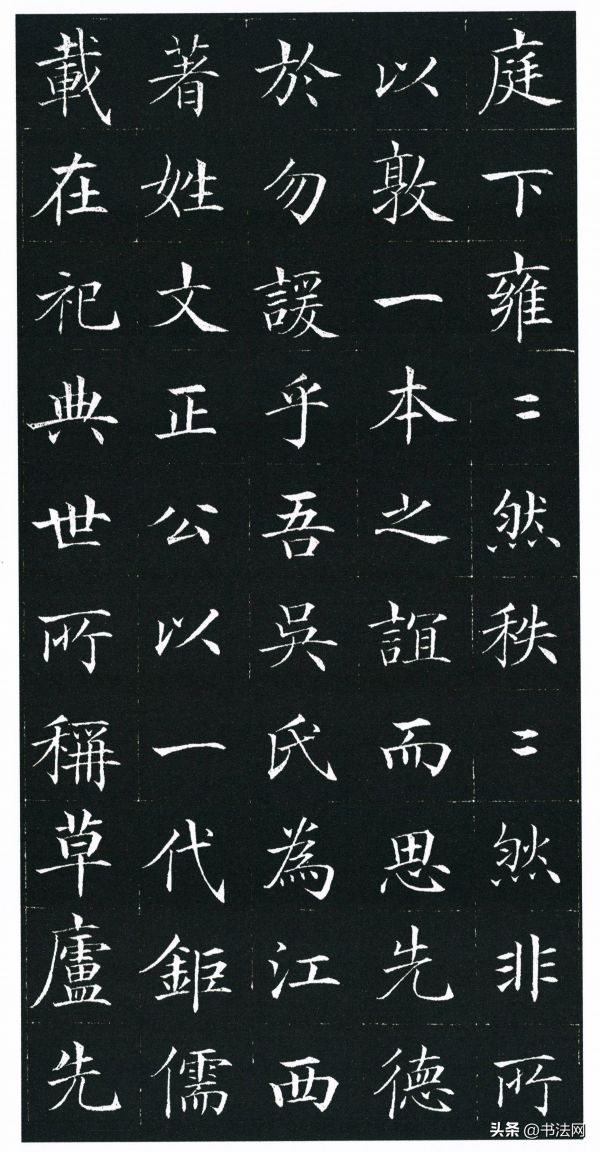 庭下雍〻然秩〻然非所
以敦一本之誼而思先德
於勿諼乎吾吳氏為江西
著姓文正公以一代鉅儒
載在祀典世所稱草廬先
头条 @书法网